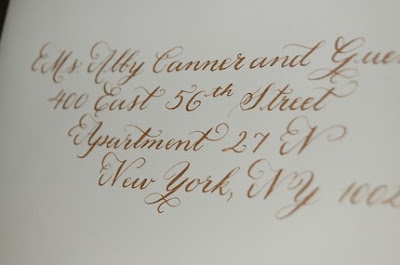 Ms. Alby Canner and Gue
400 East 56th Street
Apartment 27 N
New York, NY 1002